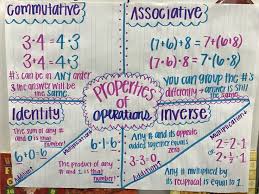 Commutative
3·4 = 4·3
3·4 = 4·3
#'s can be in ANY order
& the answer will be
the same.
Associative
(7+6)+8 = 7+(6+8)
(7×6)·8 = 7·(6·8)
You can group the #'s
differently + answer is still
the same
Properties
of
operations
Identity
The sum of any #
and 0 is that
number!
6+0=6
The product of
any # and 1 is
that number!
6·1=6
inverse
Additive
Any # and its opposite
added together equals
zero
3-3=0
Multiplicative
Any # multiplied by
its reciprocal is equal to 1.